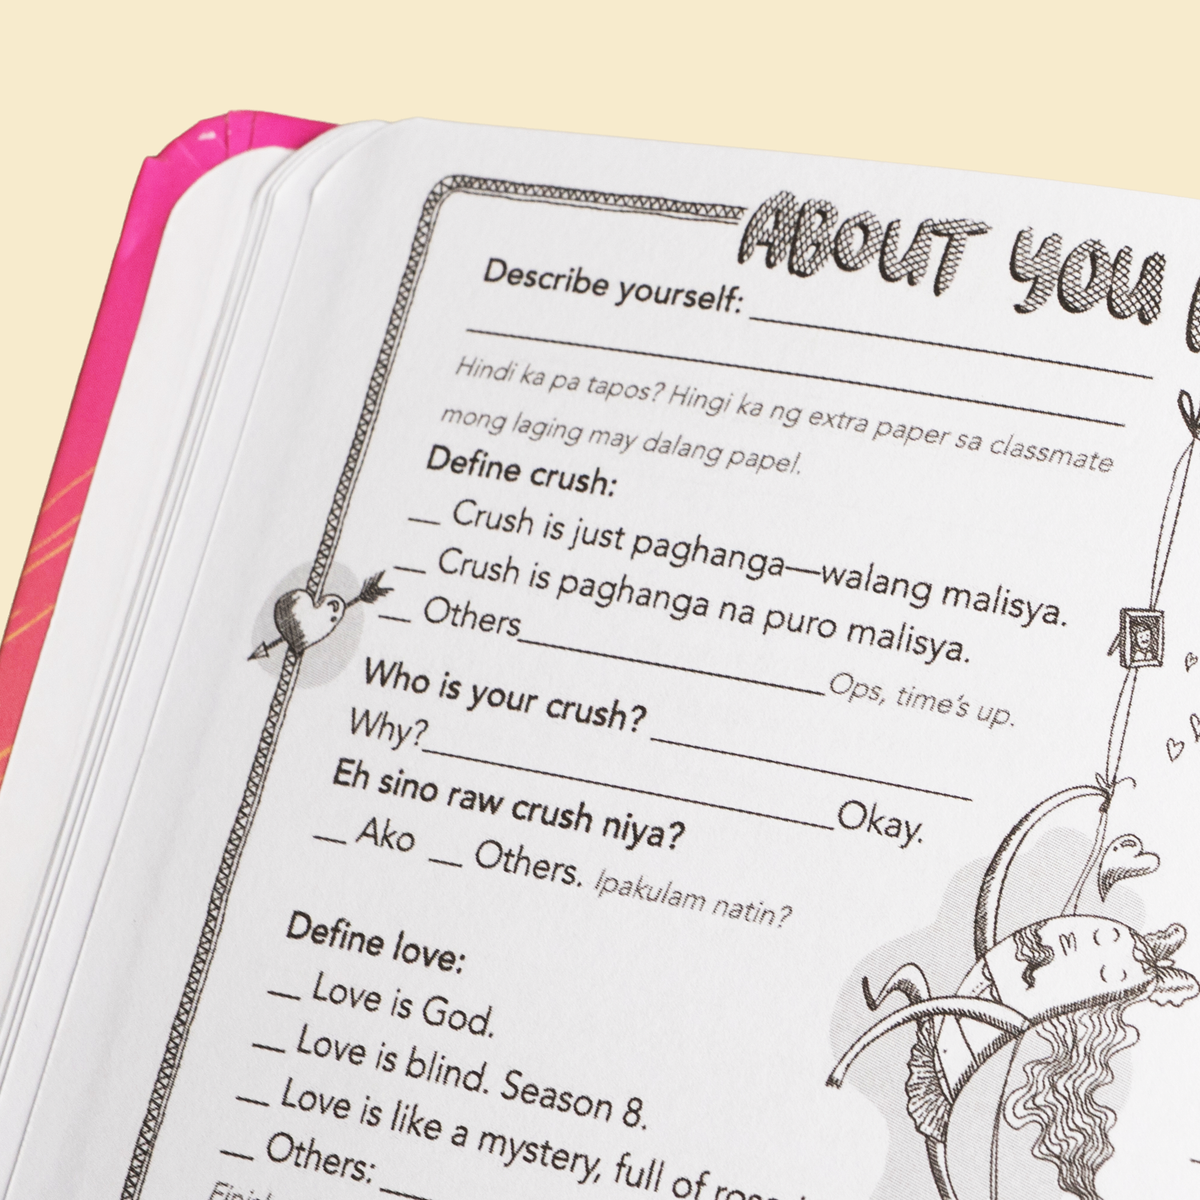 ABOUT YOU
Describe yourself:
Hindi ka pa tapos? Hingi ka ng extra paper sa classmate
mong laging may dalang papel.
Define crush:
__ Crush is just paghanga—walang malisya.
__ Crush is paghanga na puro malisya.
__ Others____________________Ops, time's up.
Who is your crush? ____________________
Why?____________________Okay.
Eh sino raw crush niya?
__ Ako __ Others. Ipakulam natin?
Define love:
__ Love is God.
__ Love is blind. Season 8.
__ Love is like a mystery, full of
__ Others: